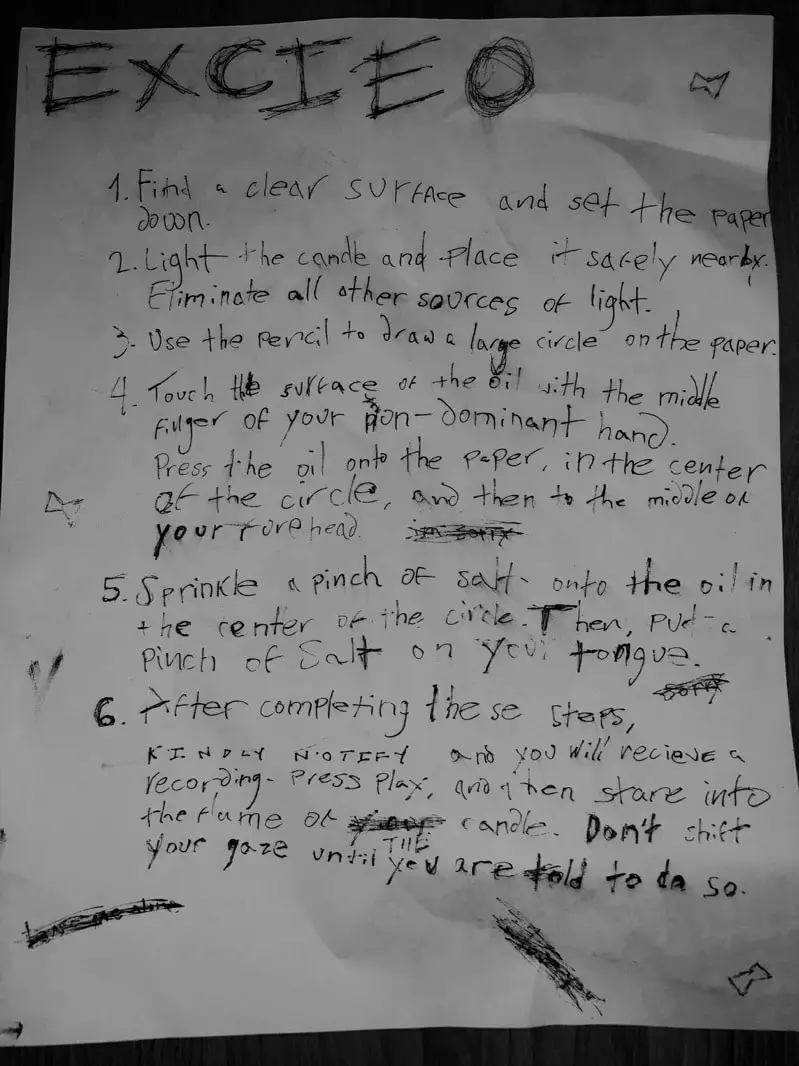 EXCIEO
1. Find a clear surface and set the paper
down.
2. Light the candle and place it safely nearby.
Eliminate all other sources of light.
3. Use the pencil to draw a large circle on the paper.
4. Touch the surface of the oil with the middle
finger of your non-dominant hand.
Press the oil onto the paper, in the center
of the circle, and then to the middle of
your forehead. im sorry
5. Sprinkle a pinch of salt onto the oil in
the center of the circle. Then, put a
pinch of salt on your tongue.
sorry
6. After completing these steps,
KINDLY NOTIFY and you will recieve a
recording. Press play, and then stare into
the flame of your THE candle. Don't shift
your gaze until you are told to do so.